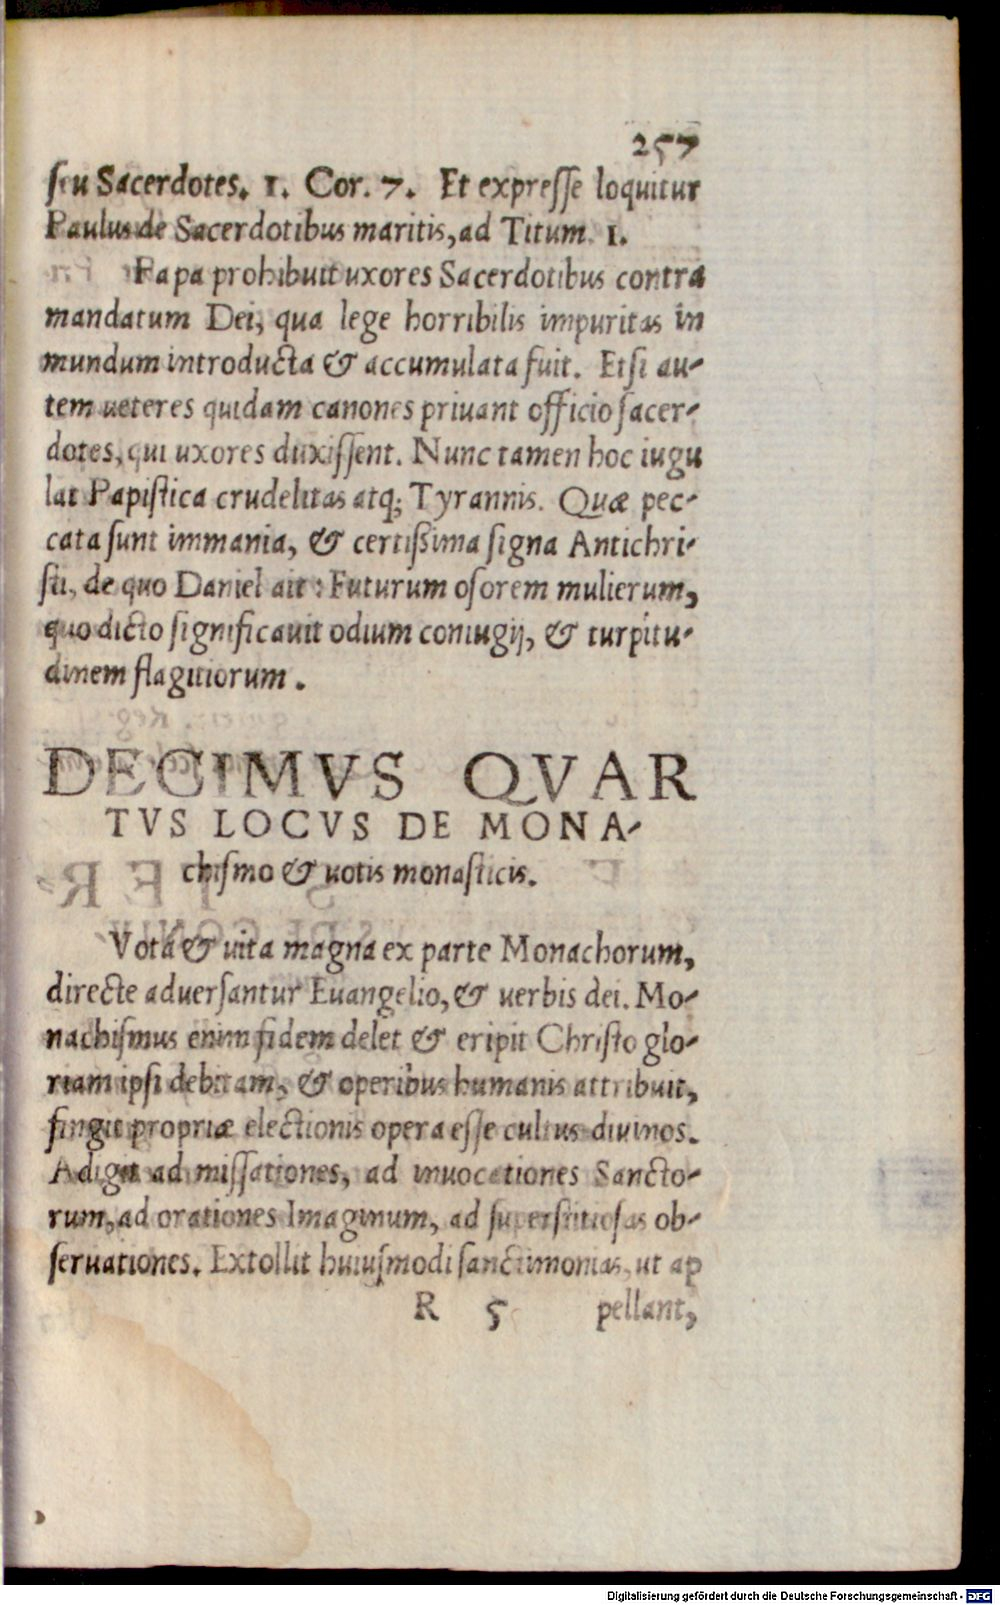 257
ſeu Sacerdotes. 1. Cor. 7. Et expreſſe loquitur
Paulus de Sacerdotibus maritis, ad Titum. 1.
Papa prohibuit uxores Sacerdotibus contra
mandatum Dei, qua lege horribilis impuritas in
mundum introducta & accumulata fuit. Etſi au-
tem ueteres quidam canones priuant officio ſacer-
dotes, qui uxores duxiſſent. Nunc tamen hoc iugu
lat Papiſtica crudelitas atq; Tyrannis. Quæ pec-
cata ſunt immania, & certißima ſigna Antichri-
ſti, de quo Daniel ait: Futurum oſorem mulierum,
quo dicto ſignificauit odium coniugij, & turpitu-
dinem flagitiorum.
DECIMVS QVAR
TVS LOCVS DE MONA-
chiſmo & uotis monaſticis.
Vota & uita magna ex parte Monachorum,
directe aduerſantur Euangelio, & uerbis dei. Mo-
nachiſmus enim fidem delet & eripit Chriſto glo-
riam ipſi debitam, & operibus humanis attribuit,
fingit propriæ electionis opera eſſe cultus diuinos.
Adigit ad miſſationes, ad inuocationes Sancto-
rum, ad orationes Imaginum, ad ſuperſtitioſas ob-
ſeruationes. Extollit huiuſmodi ſanctimonias, ut ap
R 5 pellant,
Digitalisierung gefördert durch die Deutsche Forschungsgemeinschaft - DFG